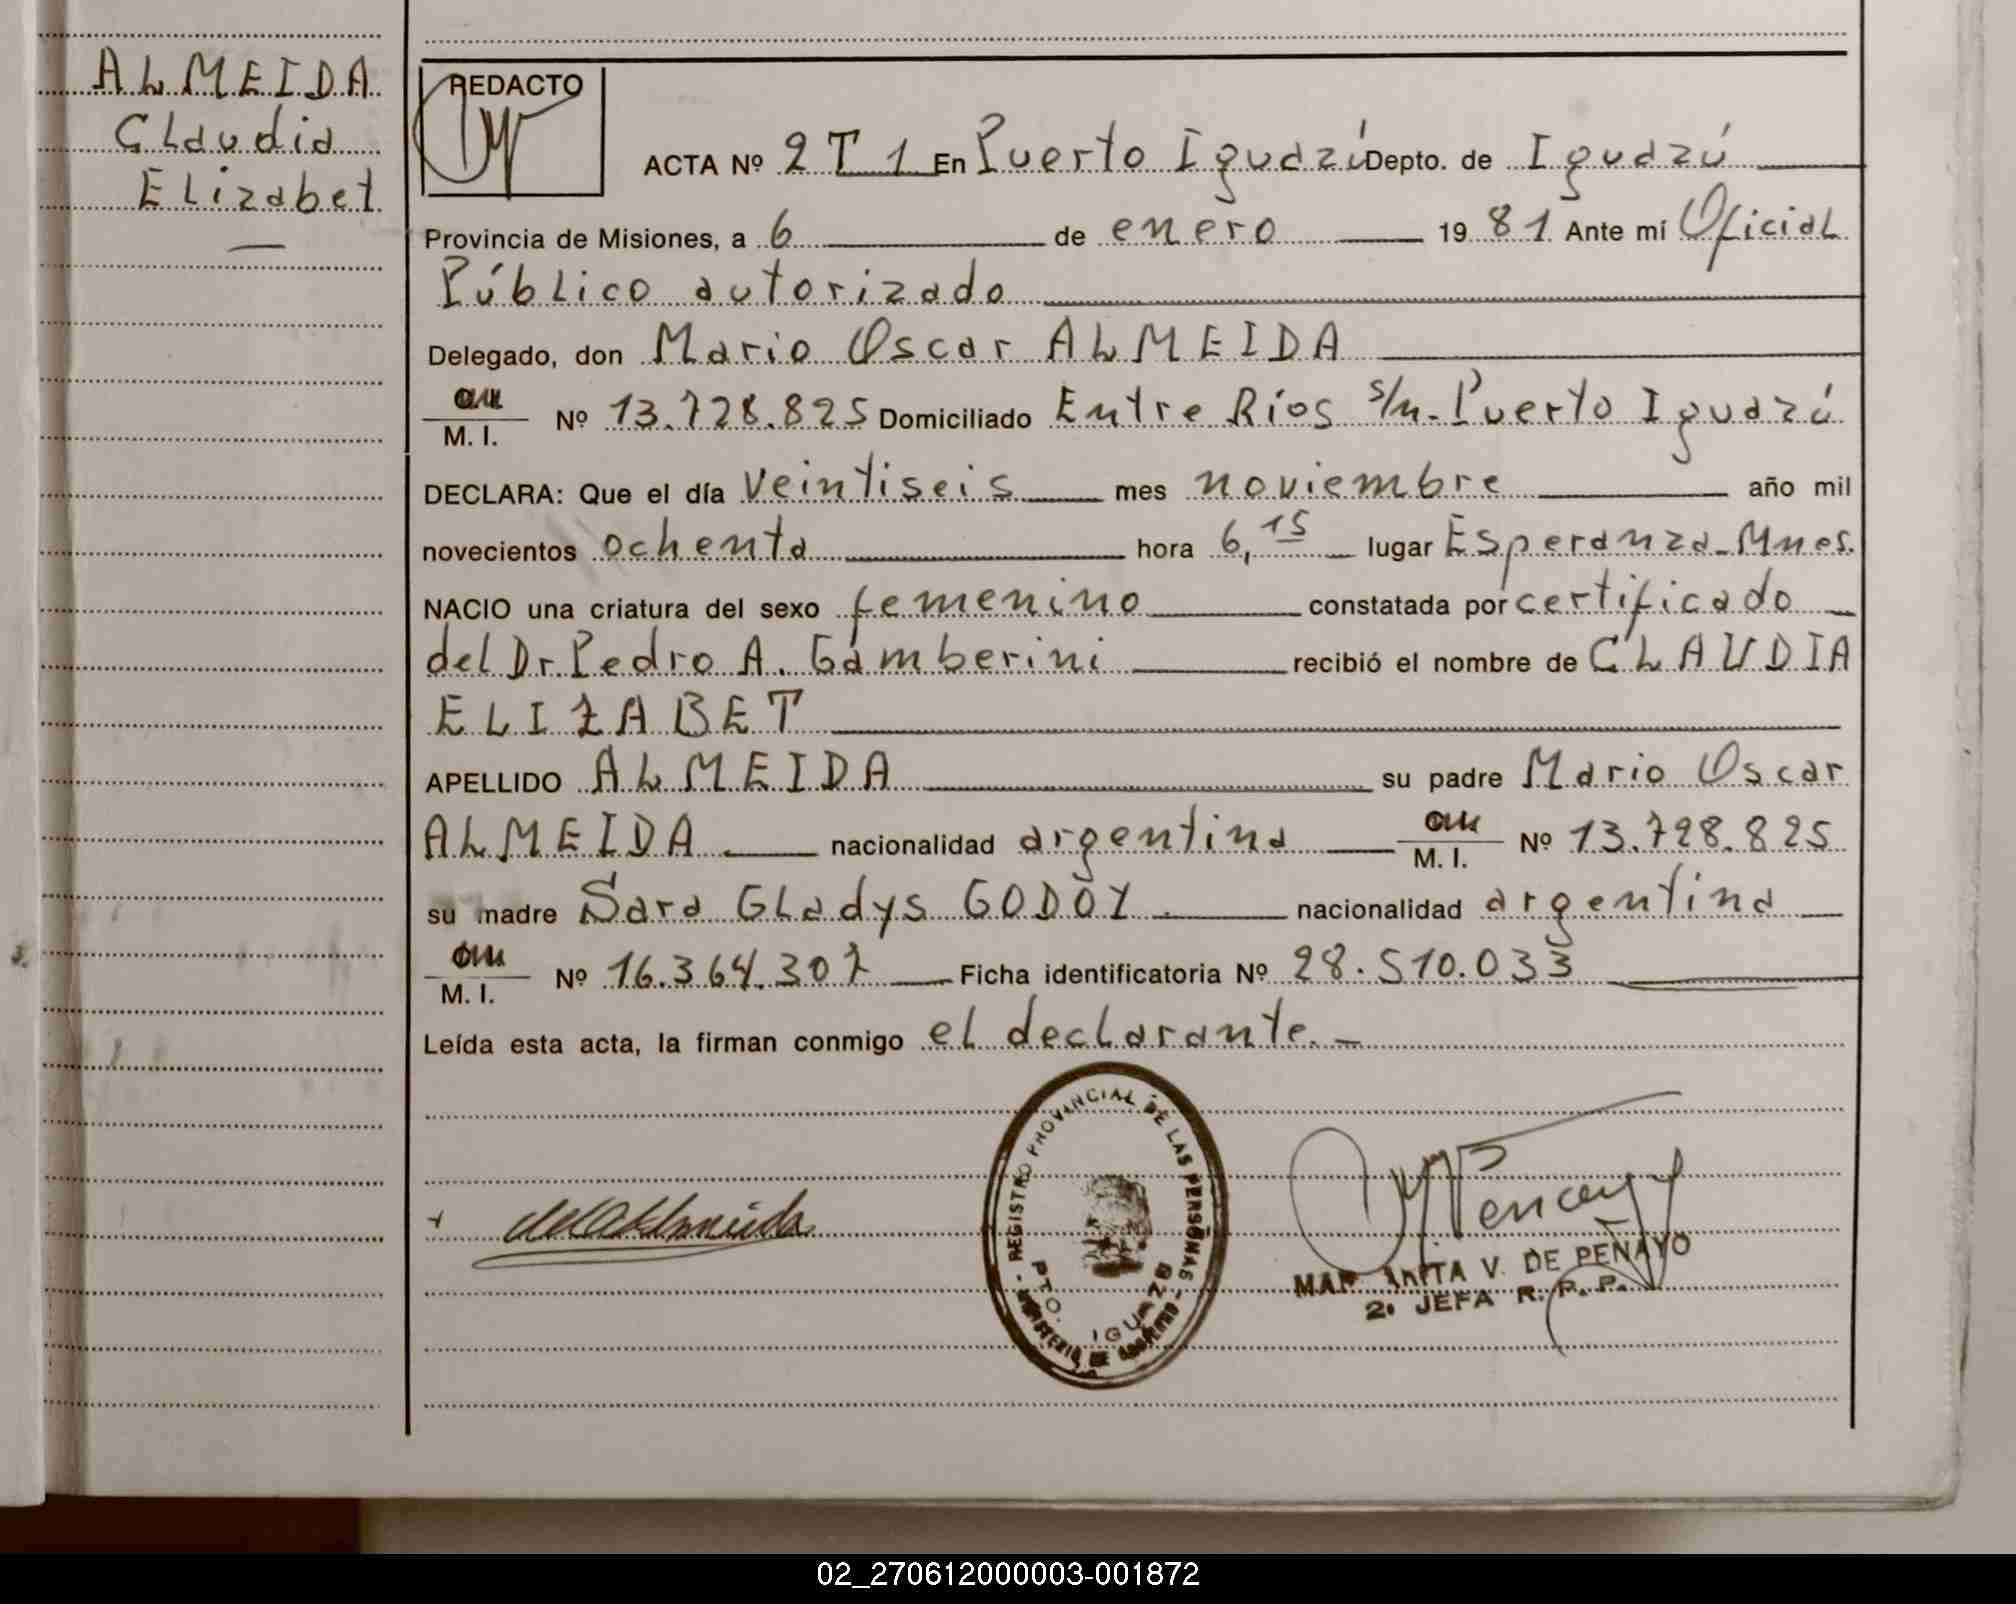 ALMEIDA
Claudia
Elizabet
REDACTO
ACTA Nº 2 T 1 En Puerto Iguazú Depto. de Iguazú
Provincia de Misiones, a 6 de enero 19 81 Ante mí Oficial
Público autorizado
Delegado, don Mario Oscar ALMEIDA
M. I. Nº 13.728.825 Domiciliado Entre Ríos s/n. Puerto Iguazú
DECLARA: Que el día veintiseis mes noviembre año mil
novecientos ochenta hora 6,15 lugar Esperanza-Mnes.
NACIO una criatura del sexo femenino constatada por certificado
del Dr. Pedro A. Gamberini recibió el nombre de CLAUDIA
ELIZABET
APELLIDO ALMEIDA su padre Mario Oscar
ALMEIDA nacionalidad argentina M. I. Nº 13.728.825
su madre Sara Gladys GODOY nacionalidad argentina
M. I. Nº 16.364.307 Ficha identificatoria Nº 28.510.033
Leída esta acta, la firman conmigo el declarante.-
REGISTRO PROVINCIAL DE LAS PERSONAS
PTO. IGUAZU
MINISTERIO DE GOBIERNO
V. DE PENAYO
2ª JEFA R. P. P.
02_270612000003-001872